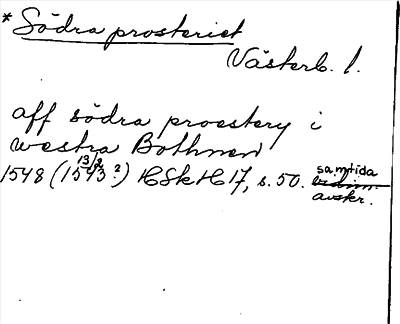 * Södra prosteriet
Västerb. l.
aff södra proestery i
westra Bothnen
1548 (1543 13/2 ?) HSkH 17, s. 50. samtida
vidim.
avskr.